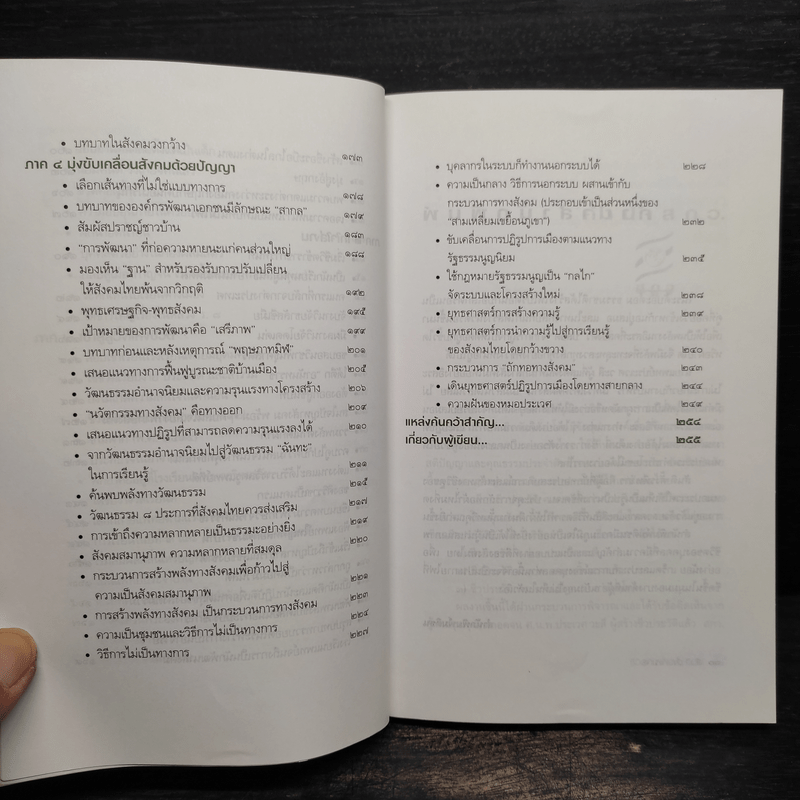 • บทบาทในสังคมวงกว้าง ๑๗๓
ภาค ๔ มุ่งขับเคลื่อนสังคมด้วยปัญญา
• เลือกเส้นทางที่ไม่ใช่แบบทางการ ๑๗๘
• บทบาทขององค์กรพัฒนาเอกชนมีลักษณะ "สากล" ๑๗๙
• สัมผัสปราชญ์ชาวบ้าน ๑๘๓
• "การพัฒนา" ที่ก่อความหายนะแก่คนส่วนใหญ่ ๑๘๘
• มองเห็น "ฐาน" สำหรับรองรับการปรับเปลี่ยน
ให้สังคมไทยพ้นจากวิกฤติ ๑๙๒
• พุทธเศรษฐกิจ-พุทธสังคม ๑๙๕
• เป้าหมายของการพัฒนาคือ "เสรีภาพ" ๑๙๙
• บทบาทก่อนและหลังเหตุการณ์ "พฤษภาทมิฬ" ๒๐๑
• เสนอแนวทางการฟื้นฟูบูรณะชาติบ้านเมือง ๒๐๕
• วัฒนธรรมอำนาจนิยมและความรุนแรงทางโครงสร้าง ๒๐๖
• "นวัตกรรมทางสังคม" คือทางออก ๒๐๙
• เสนอแนวทางปฏิรูปที่สามารถลดความรุนแรงลงได้ ๒๑๐
• จากวัฒนธรรมอำนาจนิยมไปสู่วัฒนธรรม "ฉันทะ"
ในการเรียนรู้ ๒๑๑
• ค้นพบพลังทางวัฒนธรรม ๒๑๕
• วัฒนธรรม ๘ ประการที่สังคมไทยควรส่งเสริม ๒๑๗
• การเข้าถึงความหลากหลายเป็นธรรมะอย่างยิ่ง ๒๑๙
• สังคมสมานุภาพ ความหลากหลายที่สมดุล ๒๒๐
• กระบวนการสร้างพลังทางสังคมเพื่อก้าวไปสู่
ความเป็นสังคมสมานุภาพ ๒๒๑
• การสร้างพลังทางสังคม เป็นกระบวนการทางสังคม ๒๒๓
• ความเป็นชุมชนและวิธีการไม่เป็นทางการ ๒๒๔
• วิธีการไม่เป็นทางการ ๒๒๗
• บุคลากรในระบบก็ทำงานนอกระบบได้ ๒๒๘
• ความเป็นกลาง วิธีการนอกระบบ ผสานเข้ากับ
กระบวนการทางสังคม (ประกอบเข้าเป็นส่วนหนึ่งของ
"สามเหลี่ยมเขยื้อนภูเขา") ๒๓๒
• ขับเคลื่อนการปฏิรูปการเมืองตามแนวทาง
รัฐธรรมนูญนิยม ๒๓๕
• ใช้กฎหมายรัฐธรรมนูญเป็น "กลไก"
จัดระบบและโครงสร้างใหม่ ๒๓๘
• ยุทธศาสตร์การสร้างความรู้ ๒๓๙
• ยุทธศาสตร์การนำความรู้ไปสู่การเรียนรู้
ของสังคมไทยโดยกว้างขวาง ๒๔๐
• กระบวนการ "ถักทอทางสังคม" ๒๔๓
• เดินยุทธศาสตร์ปฏิรูปการเมืองโดยทางสายกลาง ๒๔๔
• ความฝันของหมอประเวศ ๒๔๙
แหล่งค้นคว้าสำคัญ... ๒๕๔
เกี่ยวกับผู้เขียน... ๒๕๕